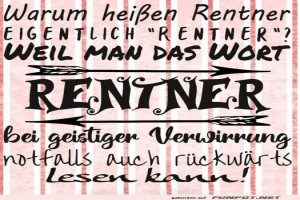 Warum heißen Rentner
EIGENTLICH "RENTNER"?
WEIL MAN DAS WORT
RENTNER
bei geistiger Verwirrung
notfalls auch rückwärts
lesen kann!
FUNPOT.NET